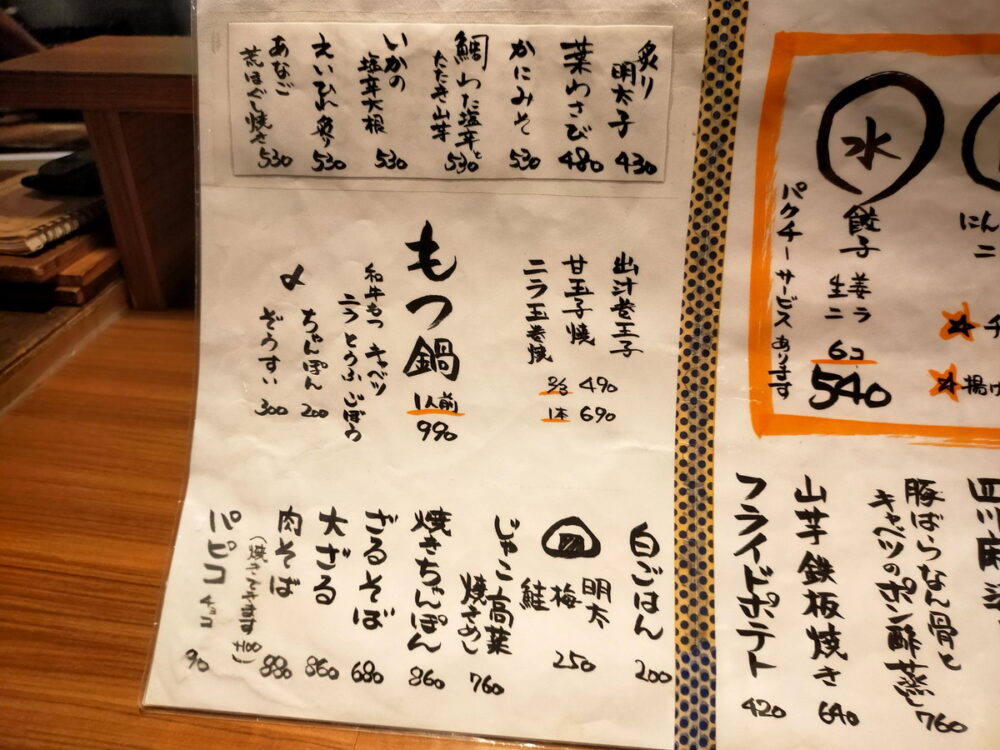 炙り
明太子
430
葉わさび
480
かにみそ
530
鯛わた塩辛と
たたき山芋
530
いかの
塩辛大根
530
えいひれ炙り
530
あなご
荒ほぐし焼き
530
出汁巻玉子
甘玉子焼
ニラ玉巻焼
2/3 490
1本 690
もつ鍋
1人前
990
和牛もつ キャベツ
ニラ とうふ ごぼう
〆
ちゃんぽん
200
ぞうすい
300
白ごはん
200
明太
梅
鮭
250
じゃこ高菜
焼きめし
760
焼きちゃんぽん
860
ざるそば
680
大ざる
860
肉そば
880
パピコ チョコ
90
水
餃子
生姜
ニラ
6コ
540
パクチーサービスあります
にん
ニ
チ
揚げ
四川麻
豚ばらなん骨と
キャベツのポン酢蒸し
760
山芋鉄板焼き
640
フライドポテト
420